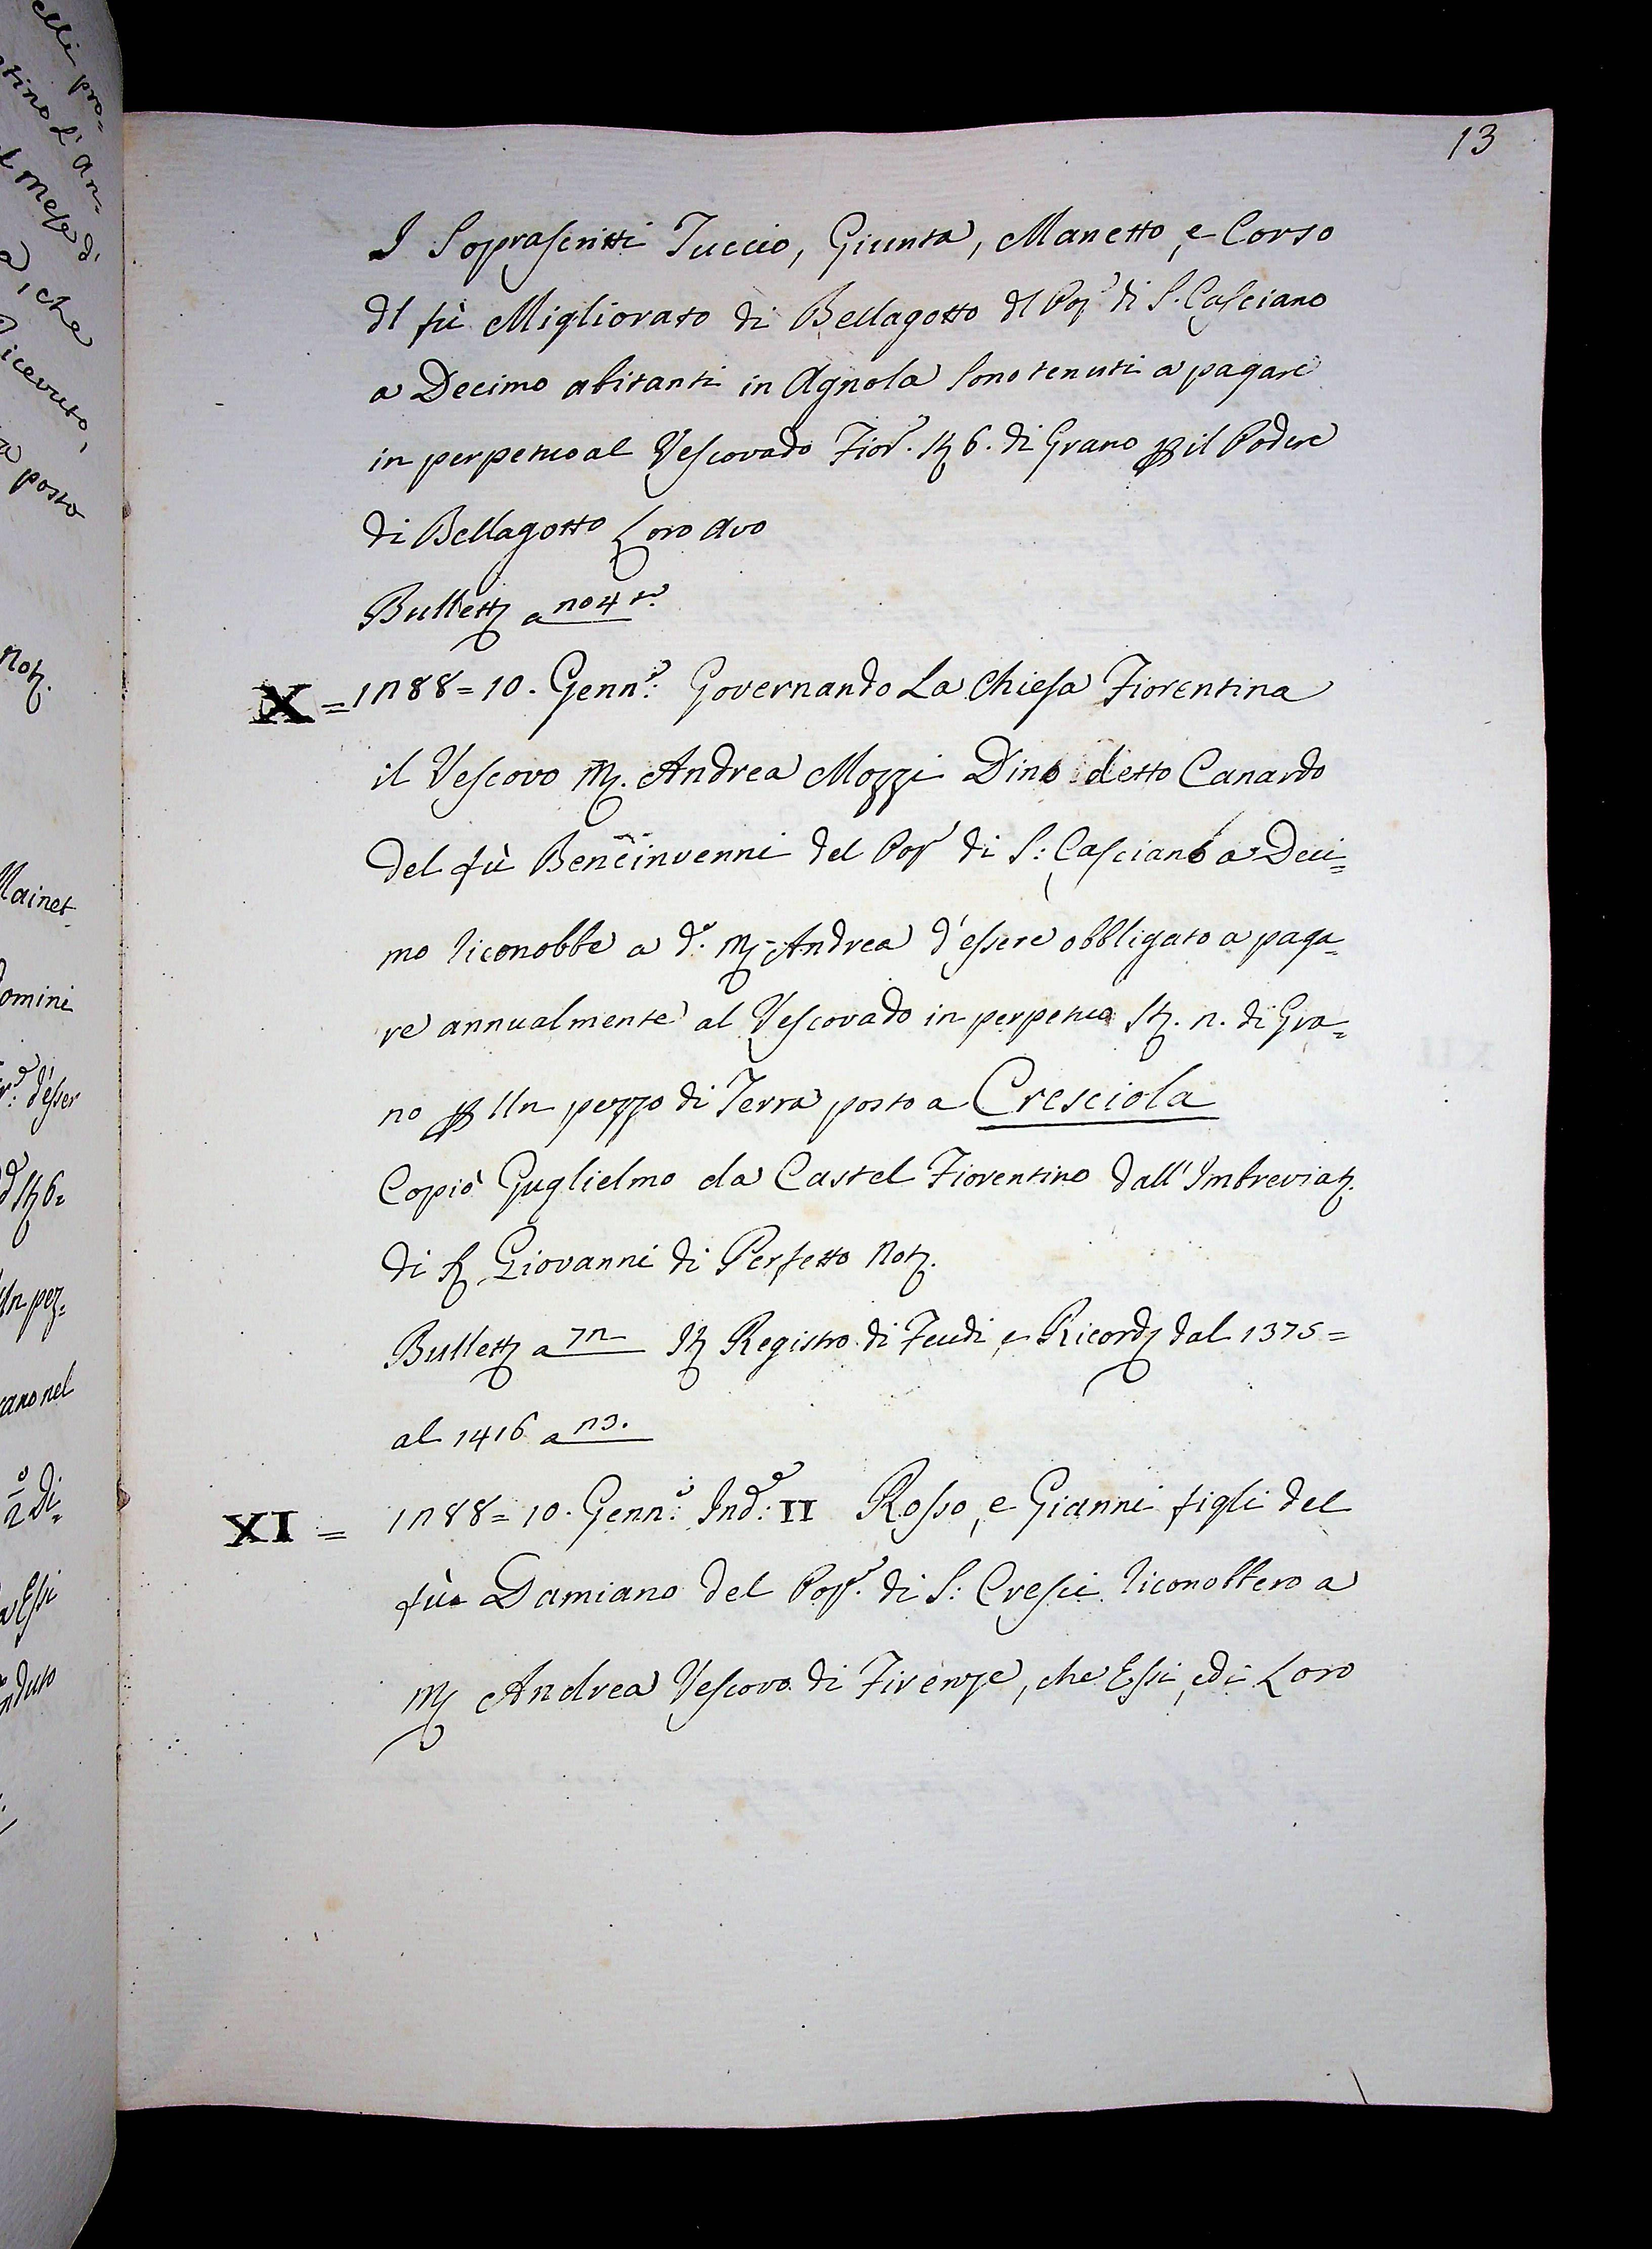 13
I Soprascritti Tuccio, Giunta, Manetto, e Corso
dl fù Migliorato di Bellagotto dl Pop.º di S. Casciano
a Decimo abitanti in Agnola sono tenuti a pagare
in perpetuo al Vescovado Fior.º St. 6. di Grano p il Podere
di Bellagotto Loro Avo
Bullett. a 204 t.º
X = 1288 = 10. Genn.º: Governando La Chiesa Fiorentina
il Vescovo M. Andrea Mozzi Dino detto Canardo
del fù Bencinvenni del Pop.º di S: Casciano a Deci=
mo riconobbe a d.º M. Andrea d'essere obbligato a paga=
re annualmente al Vescovado in perpetuo St. 2. di Gra=
no p Un pezzo di Terra posto a Cresciola
Copiò Guglielmo da Castel Fiorentino dall'Imbreviat.
di S. Giovanni di Perfetto Not.
Bullett. a 72 It. Registro di Feudi, e Ricord. dal 1375=
al 1416 a 23.
XI = 1288 = 10. Genn.º: Ind.e: II Rosso, e Gianni figli del
fù Damiano del Pop.º di S: Cresci riconobbero a
M. Andrea Vescovo di Firenze, che Essi, ed i Loro